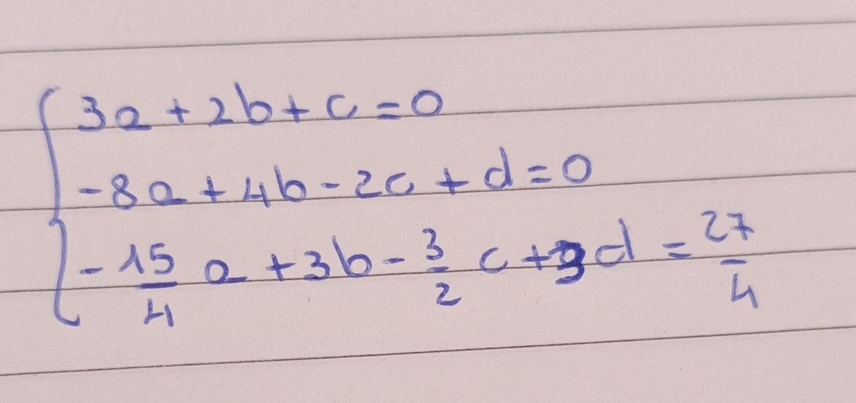 3a + 2b + c = 0
-8a + 4b - 2c + d = 0
-15/4 a + 3b - 3/2 c + d = 27/4